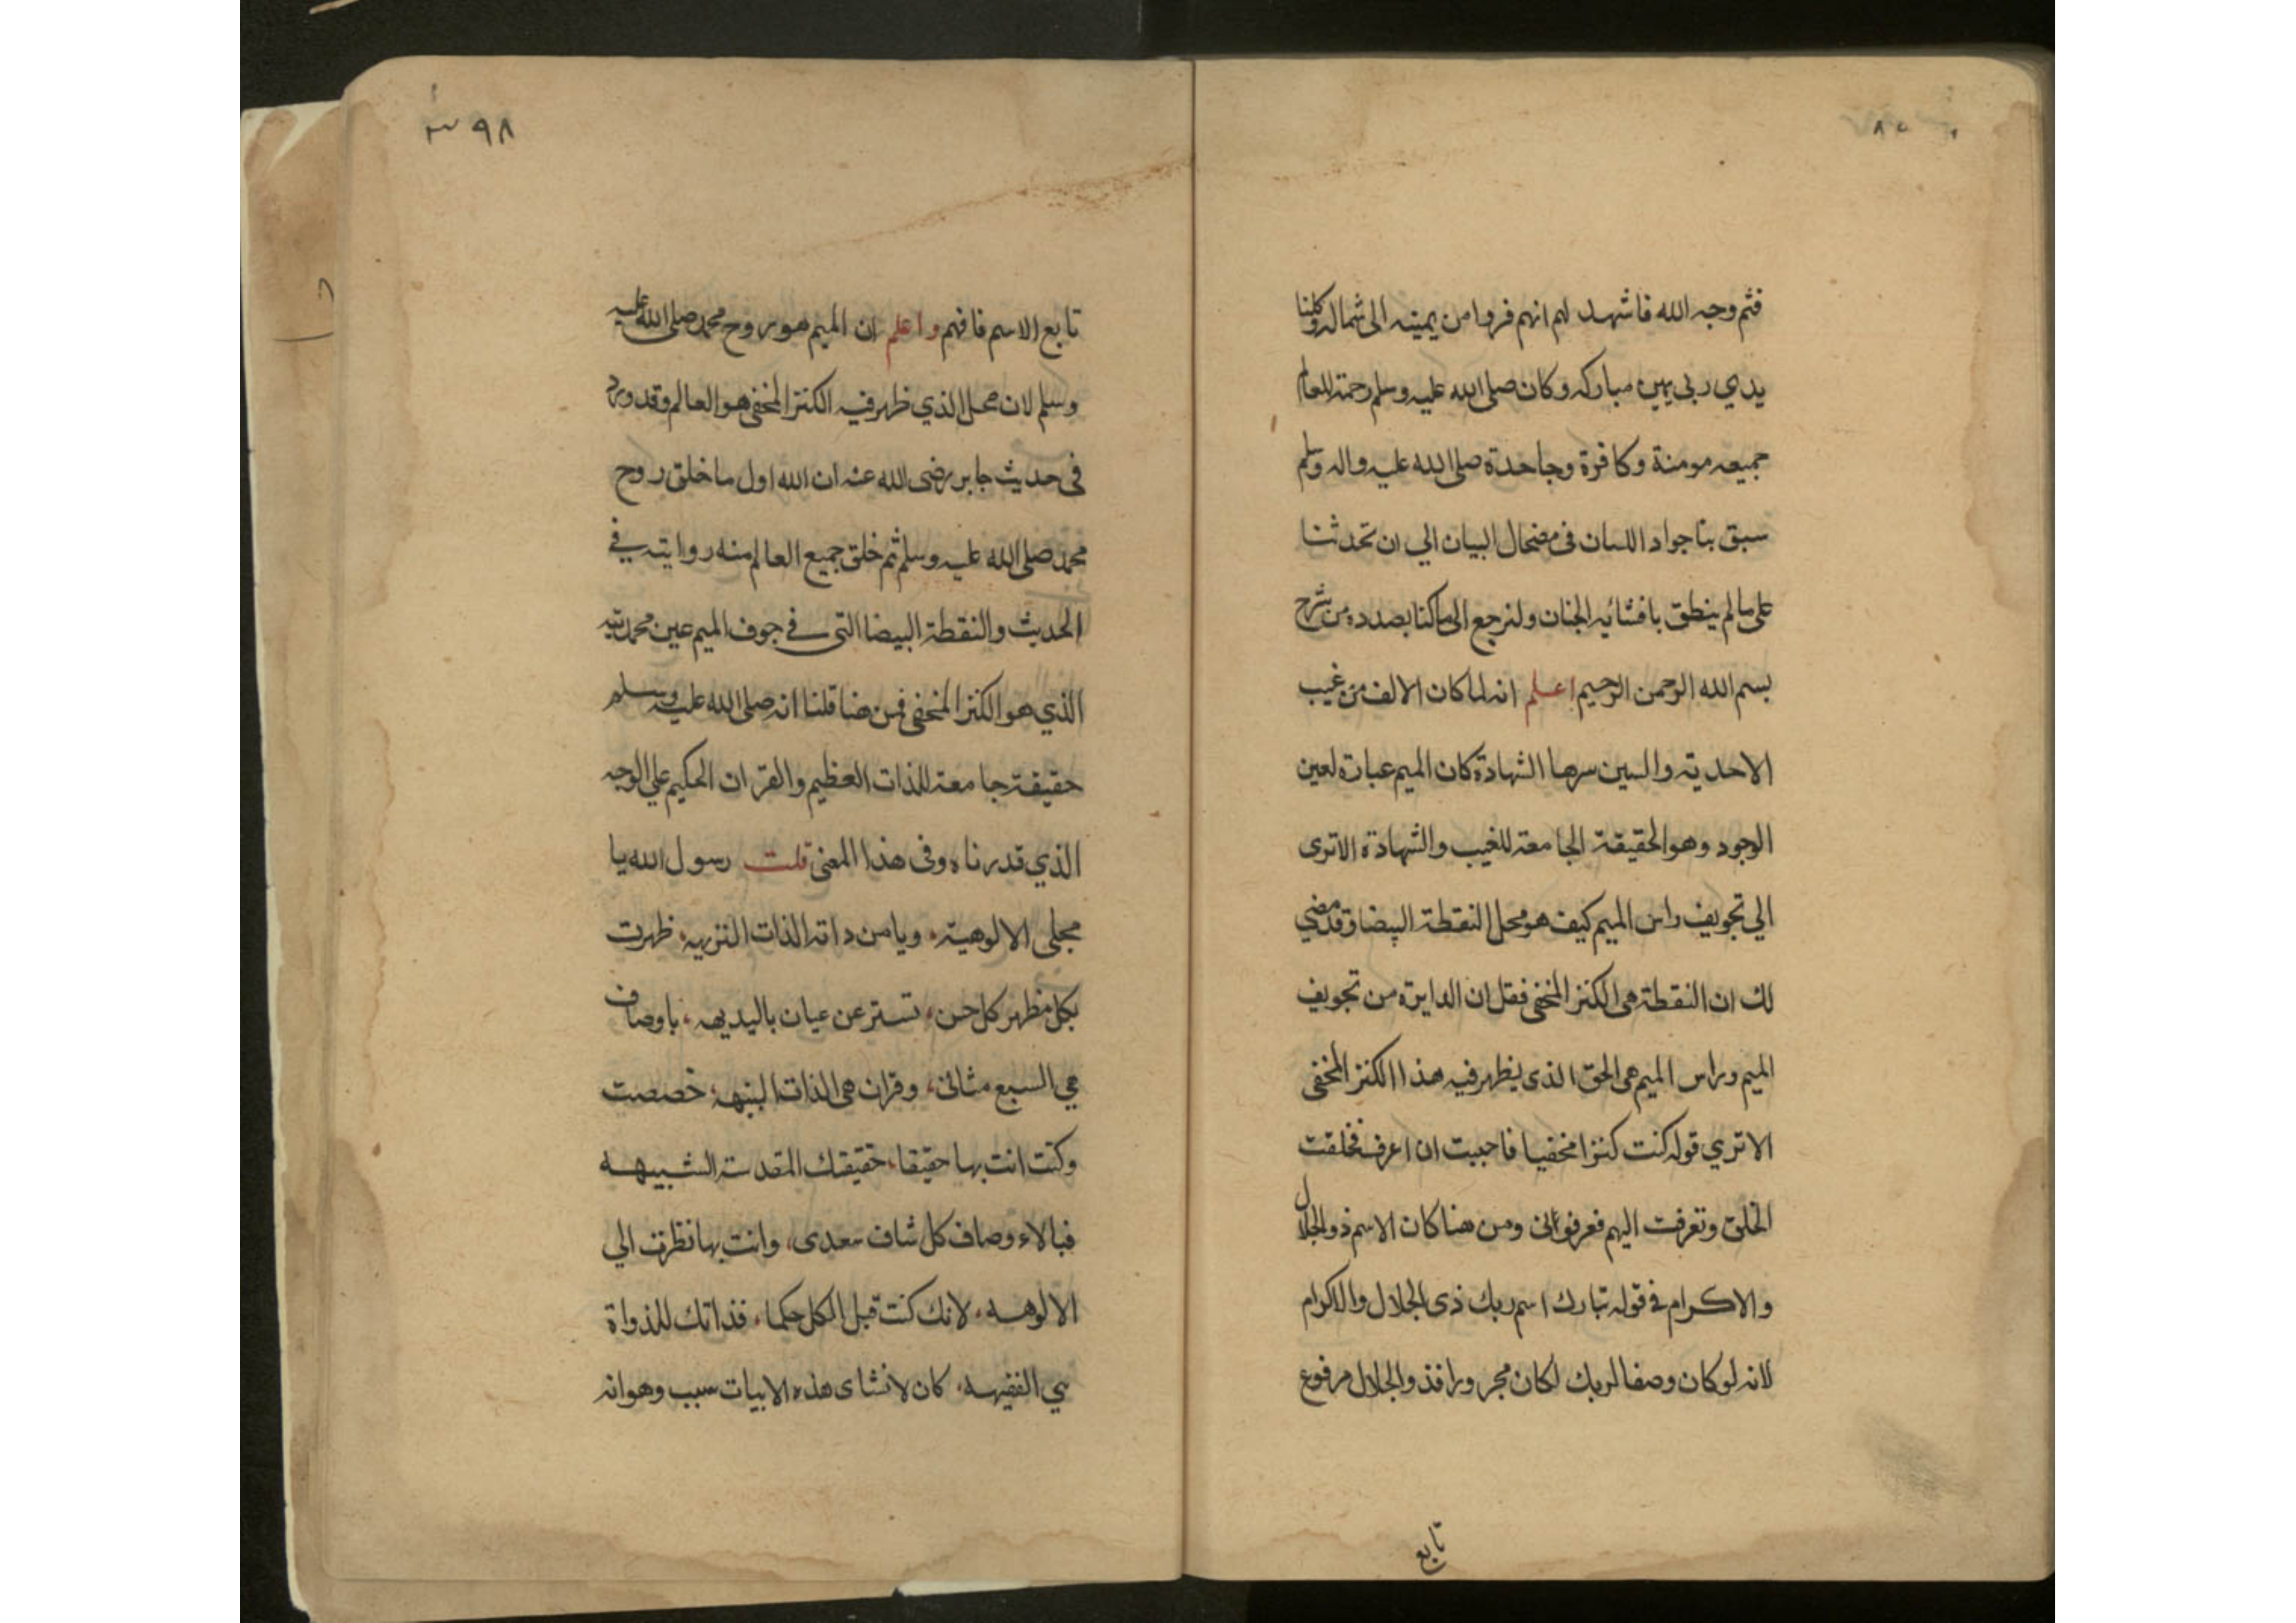 فثم وجه الله فاشهد لهم انهم فروا من يمينه الى شماله وكلتا
يدي ربى يمين مباركه وكان صلى الله عليه وسلم رحمة للعالم
جميعه مومنة وكافرة وجاحدة صلى الله عليه واله وسلم
سبق بنا جواد اللسان فى مضحال البيان الي ان تحدثنا
على مالم ينطق بافشائه الجنان ولنرجع الى ماكنا بصدده من شرح
بسم الله الرحمن الرحيم اعلم انه لما كان الالف من غيب
الاحديته والسين سرها الشهادة كان الميم عبارة لعين
الوجود وهو الحقيقة الجامعة للغيب والشهادة الاترى
الي تجويف راس الميم كيف هو محل النقطة البيضا وقد مضي
لك ان النقطة هى الكنز المخفى فقل ان الدايرة من تجويف
الميم وراس الميم هى الحق الذى يظهر فيه هذا الكنز المخفى
الا تري قوله كنت كنزا مخفيا فاحببت ان اعرف فخلقت
الخلق وتعرفت اليهم فعرفوانى ومن هنا كان الاسم ذو الجلال
والاكرام فى قوله تبارك اسم ربك ذى الجلال والاكرام
لانه لو كان وصفا لربك لكان مجرورا فذو الجلال مرفوع
تابع
٣٩٨
تابع الاسم فافهم واعلم ان الميم هو روح محمد صلى الله عليه
وسلم لان محل الذي ظهر فيه الكنز المخفى هو العالم وقد ورد
فى حديث جابر رضى الله عنه ان الله اول ما خلق روح
محمد صلى الله عليه وسلم ثم خلق جميع العالم منه روايته في
الحديث والنقطة البيضا التى في جوف الميم عين محمديته
الذي هو الكنز المخفى فمن هنا قلنا انه صلى الله عليه وسلم
حقيقة جامعة للذات العظيم والقران الحكيم علي الوجه
الذي قدرناه وفى هذا المعنى قلت رسول الله يا
مجلى الالوهية، ويامن داته الذات النزيهه، ظهرت
بكل مظهر كل حسن، تستر عن عيان باليديهه، باوصاف
هي السبع مثانى، وقران هى الذات البنيهه، خصصت
وكنت انت بها حقيقا، حقيقتك المقدسة الشبيهه
فبالاء وصاف كل شاف سعدى، وانت بها نظرت الي
الالوهه، لانك كنت قبل الكل حكما، فذاتك للذواة
هي الفقيهه، كان لانشاى هذه الابيات سبب وهو انه